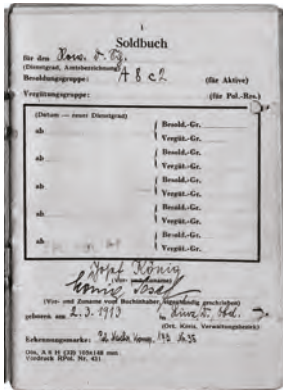 1
Soldbuch
für den
(Dienstgrad, Amtsbezeichnung)
Besoldungsgruppe: A 8 c 2 (für Aktive)
Vergütungsgruppe: (für Pol.-Res.)
(Datum — neuer Dienstgrad)
Besold.-Gr.
ab Vergüt.-Gr.
Besold.-Gr.
ab Vergüt.-Gr.
Besold.-Gr.
ab Vergüt.-Gr.
Besold.-Gr.
ab Vergüt.-Gr.
Besold.-Gr.
ab Vergüt.-Gr.
König
(Vor- und Zuname)
König Josef
(Vor- und Zuname vom Buchinhaber, eigenhändig geschrieben)
geboren am 2.3.1913 in
(Ort, Kreis, Verwaltungsbezirk)
Erkennungsmarke:
Din. A 6 H (32) 105x148 mm
Vordruck RPol. Nr. 421